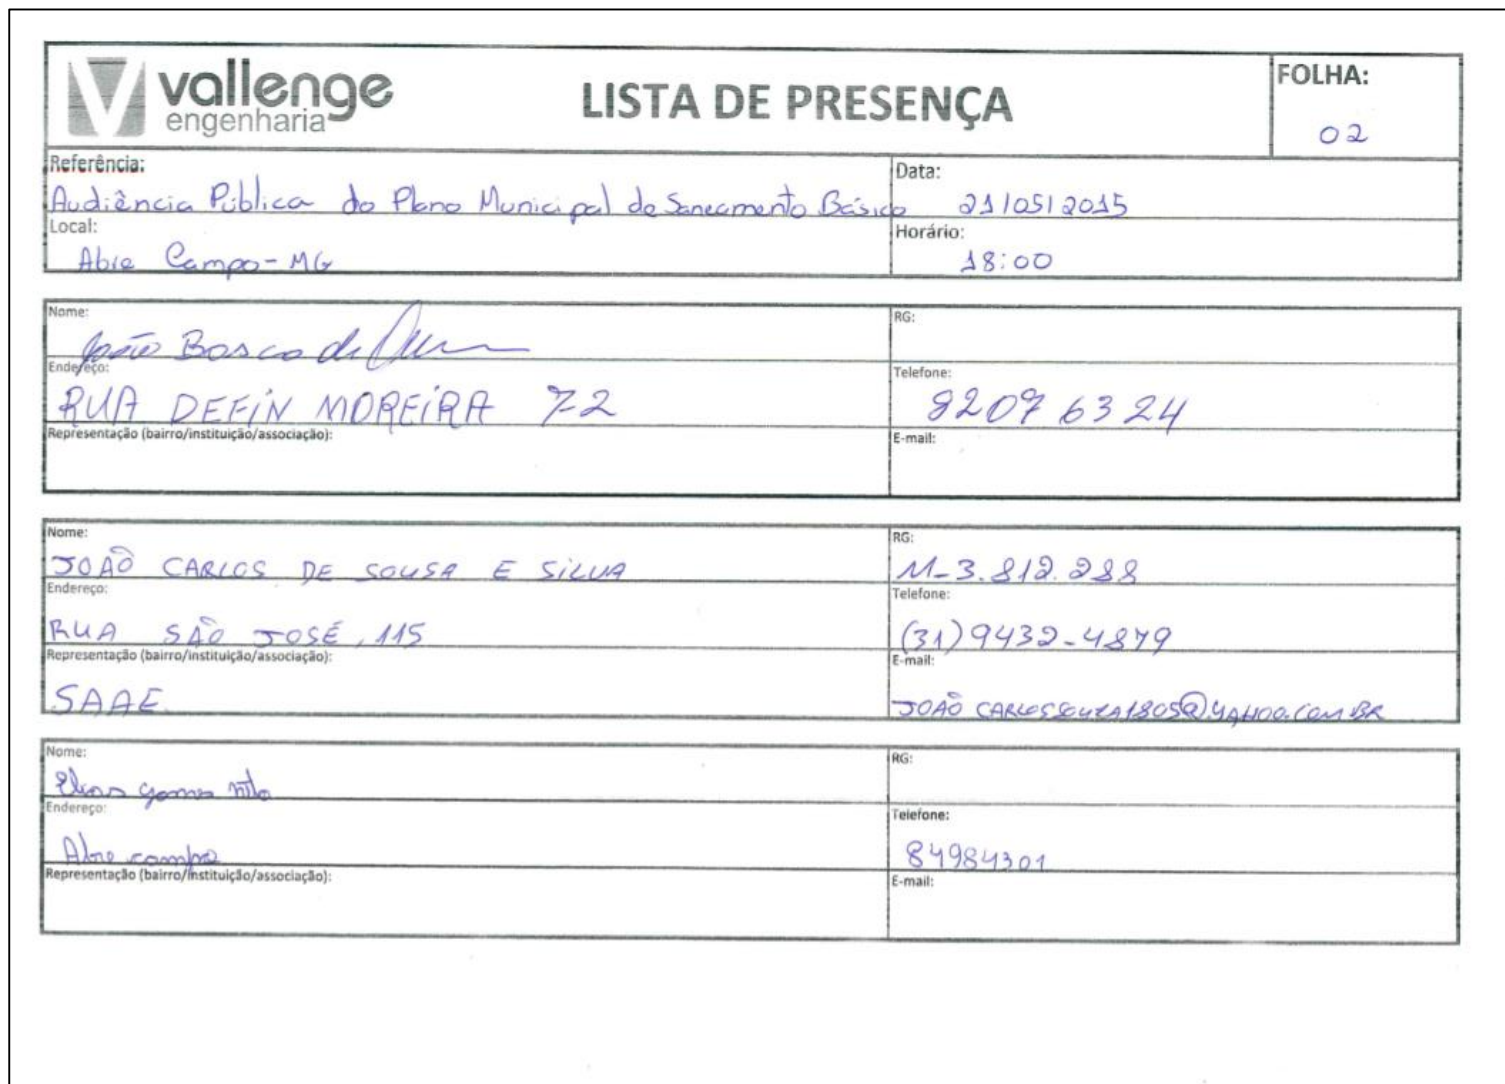 vallenge
engenharia
LISTA DE PRESENÇA
FOLHA:
02
Referência:
Audiência Pública do Plano Municipal de Saneamento Básico
Data:
21/05/2015
Local:
Abre Campo-MG
Horário:
18:00
Nome:
João Bosco de
RG:
Endereço:
RUA DEFIN MOREIRA 72
Telefone:
82076324
Representação (bairro/instituição/associação):
E-mail:
Nome:
JOÃO CARLOS DE SOUSA E SILVA
RG:
M-3.812.288
Endereço:
RUA SÃO JOSÉ, 115
Telefone:
(31) 9432-4879
Representação (bairro/instituição/associação):
SAAE.
E-mail:
JOÃO CARLOSSOUZA1805@YAHOO.COM.BR
Nome:
Elias Gomes
RG:
Endereço:
Abre campo
Telefone:
84984301
Representação (bairro/instituição/associação):
E-mail: